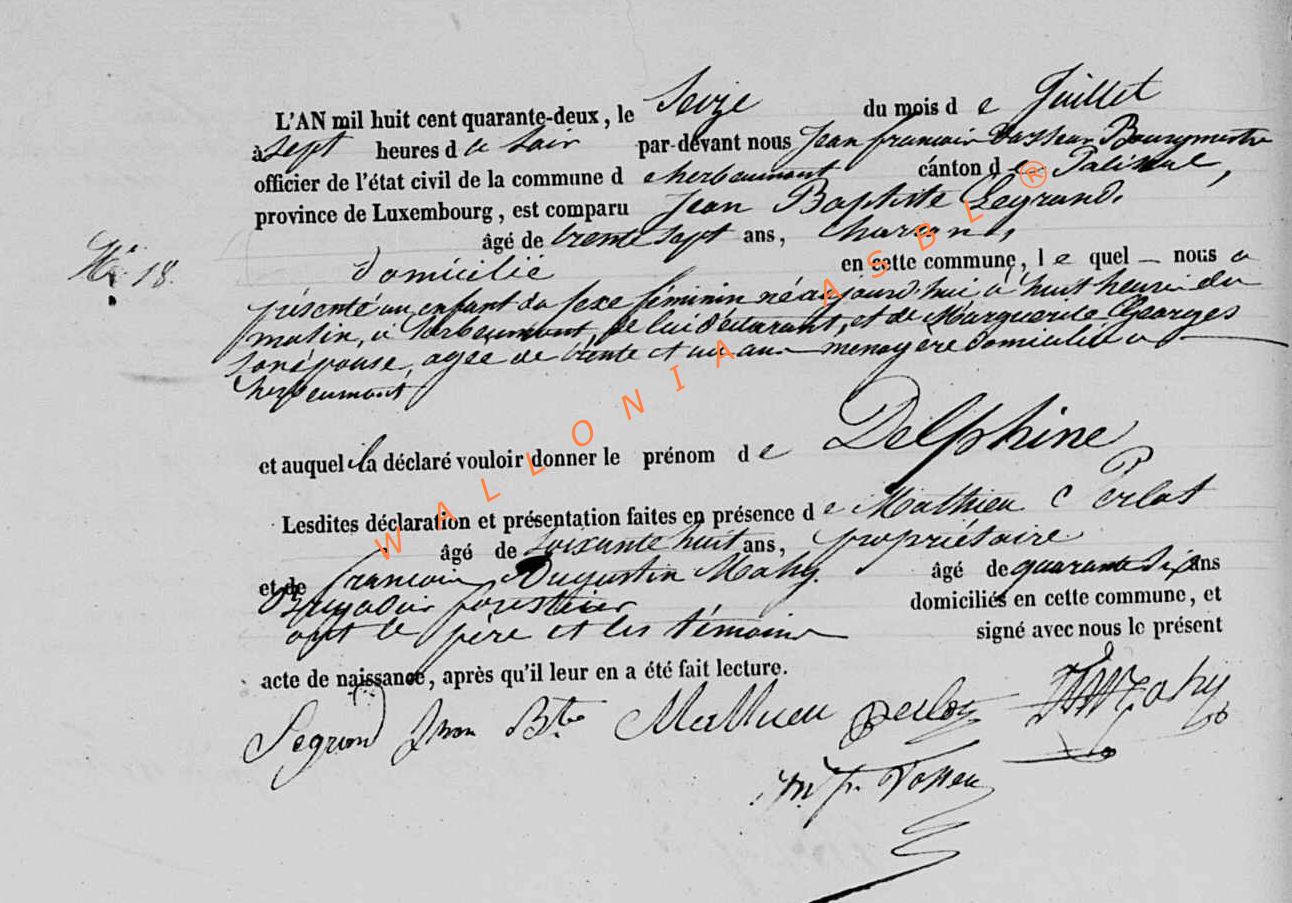 L'AN mil huit cent quarante-deux, le Seize du mois de Juillet
à Sept heures du Soir par-devant nous Jean françois Vasseur Bourgmestre
officier de l'état civil de la commune d'herbeumont canton de Paliseul,
province de Luxembourg, est comparu Jean Baptiste Legrand.
âgé de trente Sept ans,
N° 18.
domicilié en cette commune, le quel — nous a
présenté un enfant du sexe féminin né aujourd'hui à huit heures du
matin, à herbeumont, de lui déclarant, et de Marguerite Georges
son épouse, agée de trente et un ans menagère domiciliée a
herbeumont
et auquel il a déclaré vouloir donner le prénom de Delphine
Lesdites déclaration et présentation faites en présence de Mathieu Perlot
âgé de soixante huit ans, propriétaire
et de francois Augustin Mahy. âgé de quarante six ans
Brigadier forestier domiciliés en cette commune, et
ont le père et les témoins signé avec nous le présent
acte de naissance, après qu'il leur en a été fait lecture.
Legrand Jean Bte Mathieu Perlot Mahy
WALLONIA ASBL ®